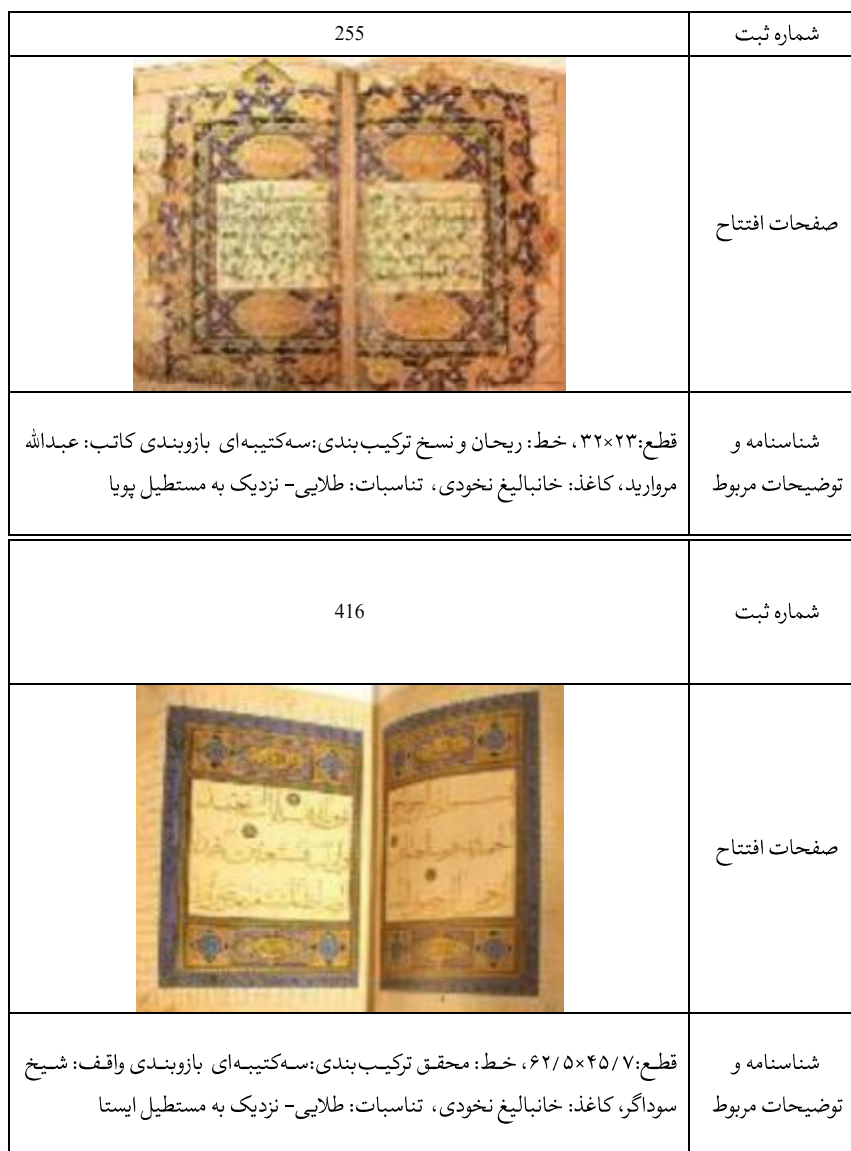 شماره ثبت 255
صفحات افتتاح
شناسنامه و توضیحات مربوط
قطع:۲۳×۳۲، خط: ریحان و نسخ ترکیب‌بندی:سه‌کتیبه‌ای بازوبندی کاتب: عبدالله
مروارید، کاغذ: خانبالیغ نخودی، تناسبات: طلایی- نزدیک به مستطیل پویا
شماره ثبت 416
صفحات افتتاح
شناسنامه و توضیحات مربوط
قطع:۴۵/۷×۶۲/۵، خط: محقق ترکیب‌بندی:سه‌کتیبه‌ای بازوبندی واقف: شیخ
سوداگر، کاغذ: خانبالیغ نخودی، تناسبات: طلایی- نزدیک به مستطیل ایستا